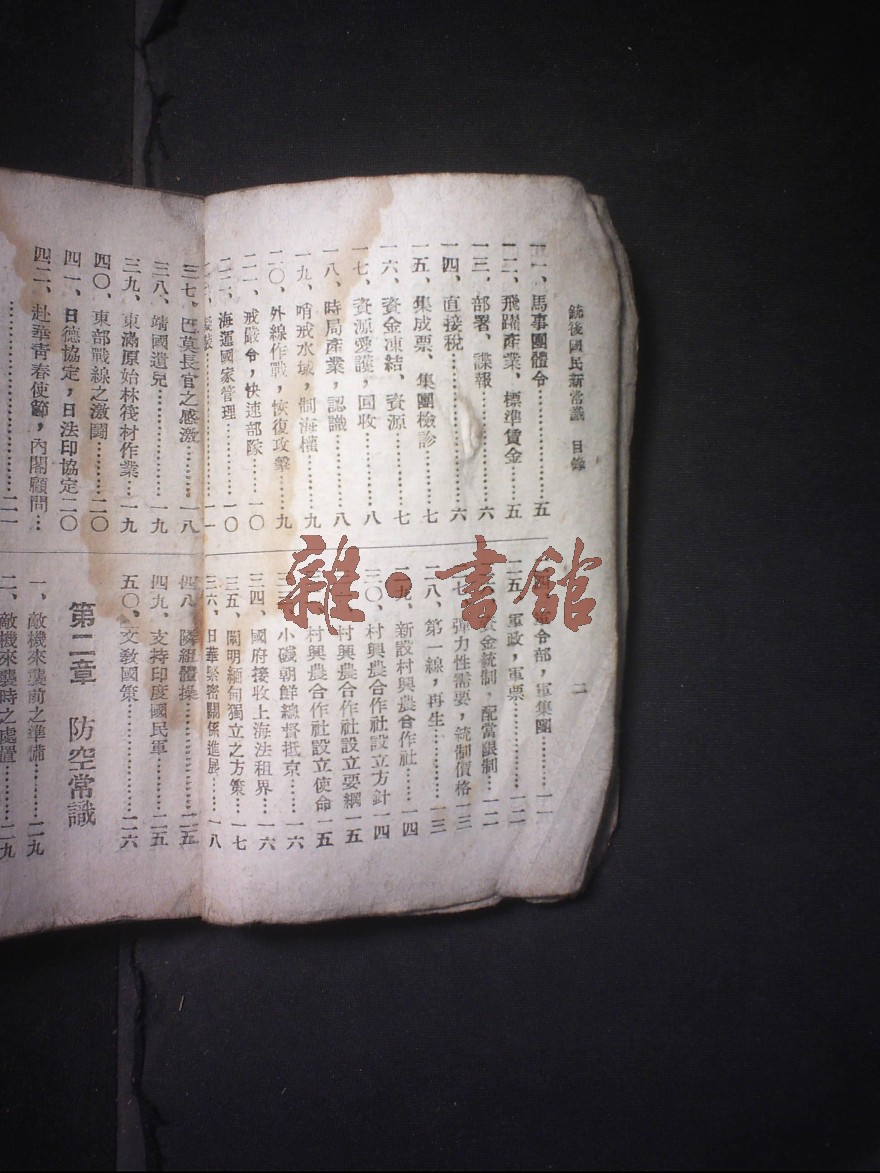 銃後國民新常識 目錄 二
一一、馬事團體令………五
一二、飛躍產業、標準賃金…五
一三、部署、諜報………六
一四、直接稅………六
一五、集成票、集團檢診………七
一六、資金凍結、資源………七
一七、資源愛護，回收………八
一八、時局產業，認識………八
一九、哨戒水域，制海權………九
二〇、外線作戰，恢復攻擊…九
二一、戒嚴令，快速部隊…一〇
二二、海運國家管理………一〇
令部，軍集團………一一
二五、軍政，軍票………一二
資金統制，配當限制…一二
七、彈力性需要，統制價格 一三
二八、第一線，再生………一三
二九、新設村興農合作社…一四
三〇、村興農合作社設立方針 一四
村興農合作社設立要綱 一五
村興農合作社設立使命 一五
小磯朝鮮總督抵京……一六
三四、國府接收上海法租界…一六
三五、闡明緬甸獨立之方策…一七
三六、日華緊密關係進展……一八
三七、巴莫長官之感激………一八
三八、靖國遺兒………一九
三九、東滿原始林筏材作業…一九
四〇、東部戰線之激鬪………二〇
四一、日德協定，日法印協定二〇
四二、赴華靑春使節，內閣顧問…
………二一
四八、隣組體操………二五
四九、支持印度國民軍………二五
五〇、文敎國策………二六
第二章 防空常識
一、敵機來襲前之準備………二九
二、敵機來襲時之處置………二九
雜·書館